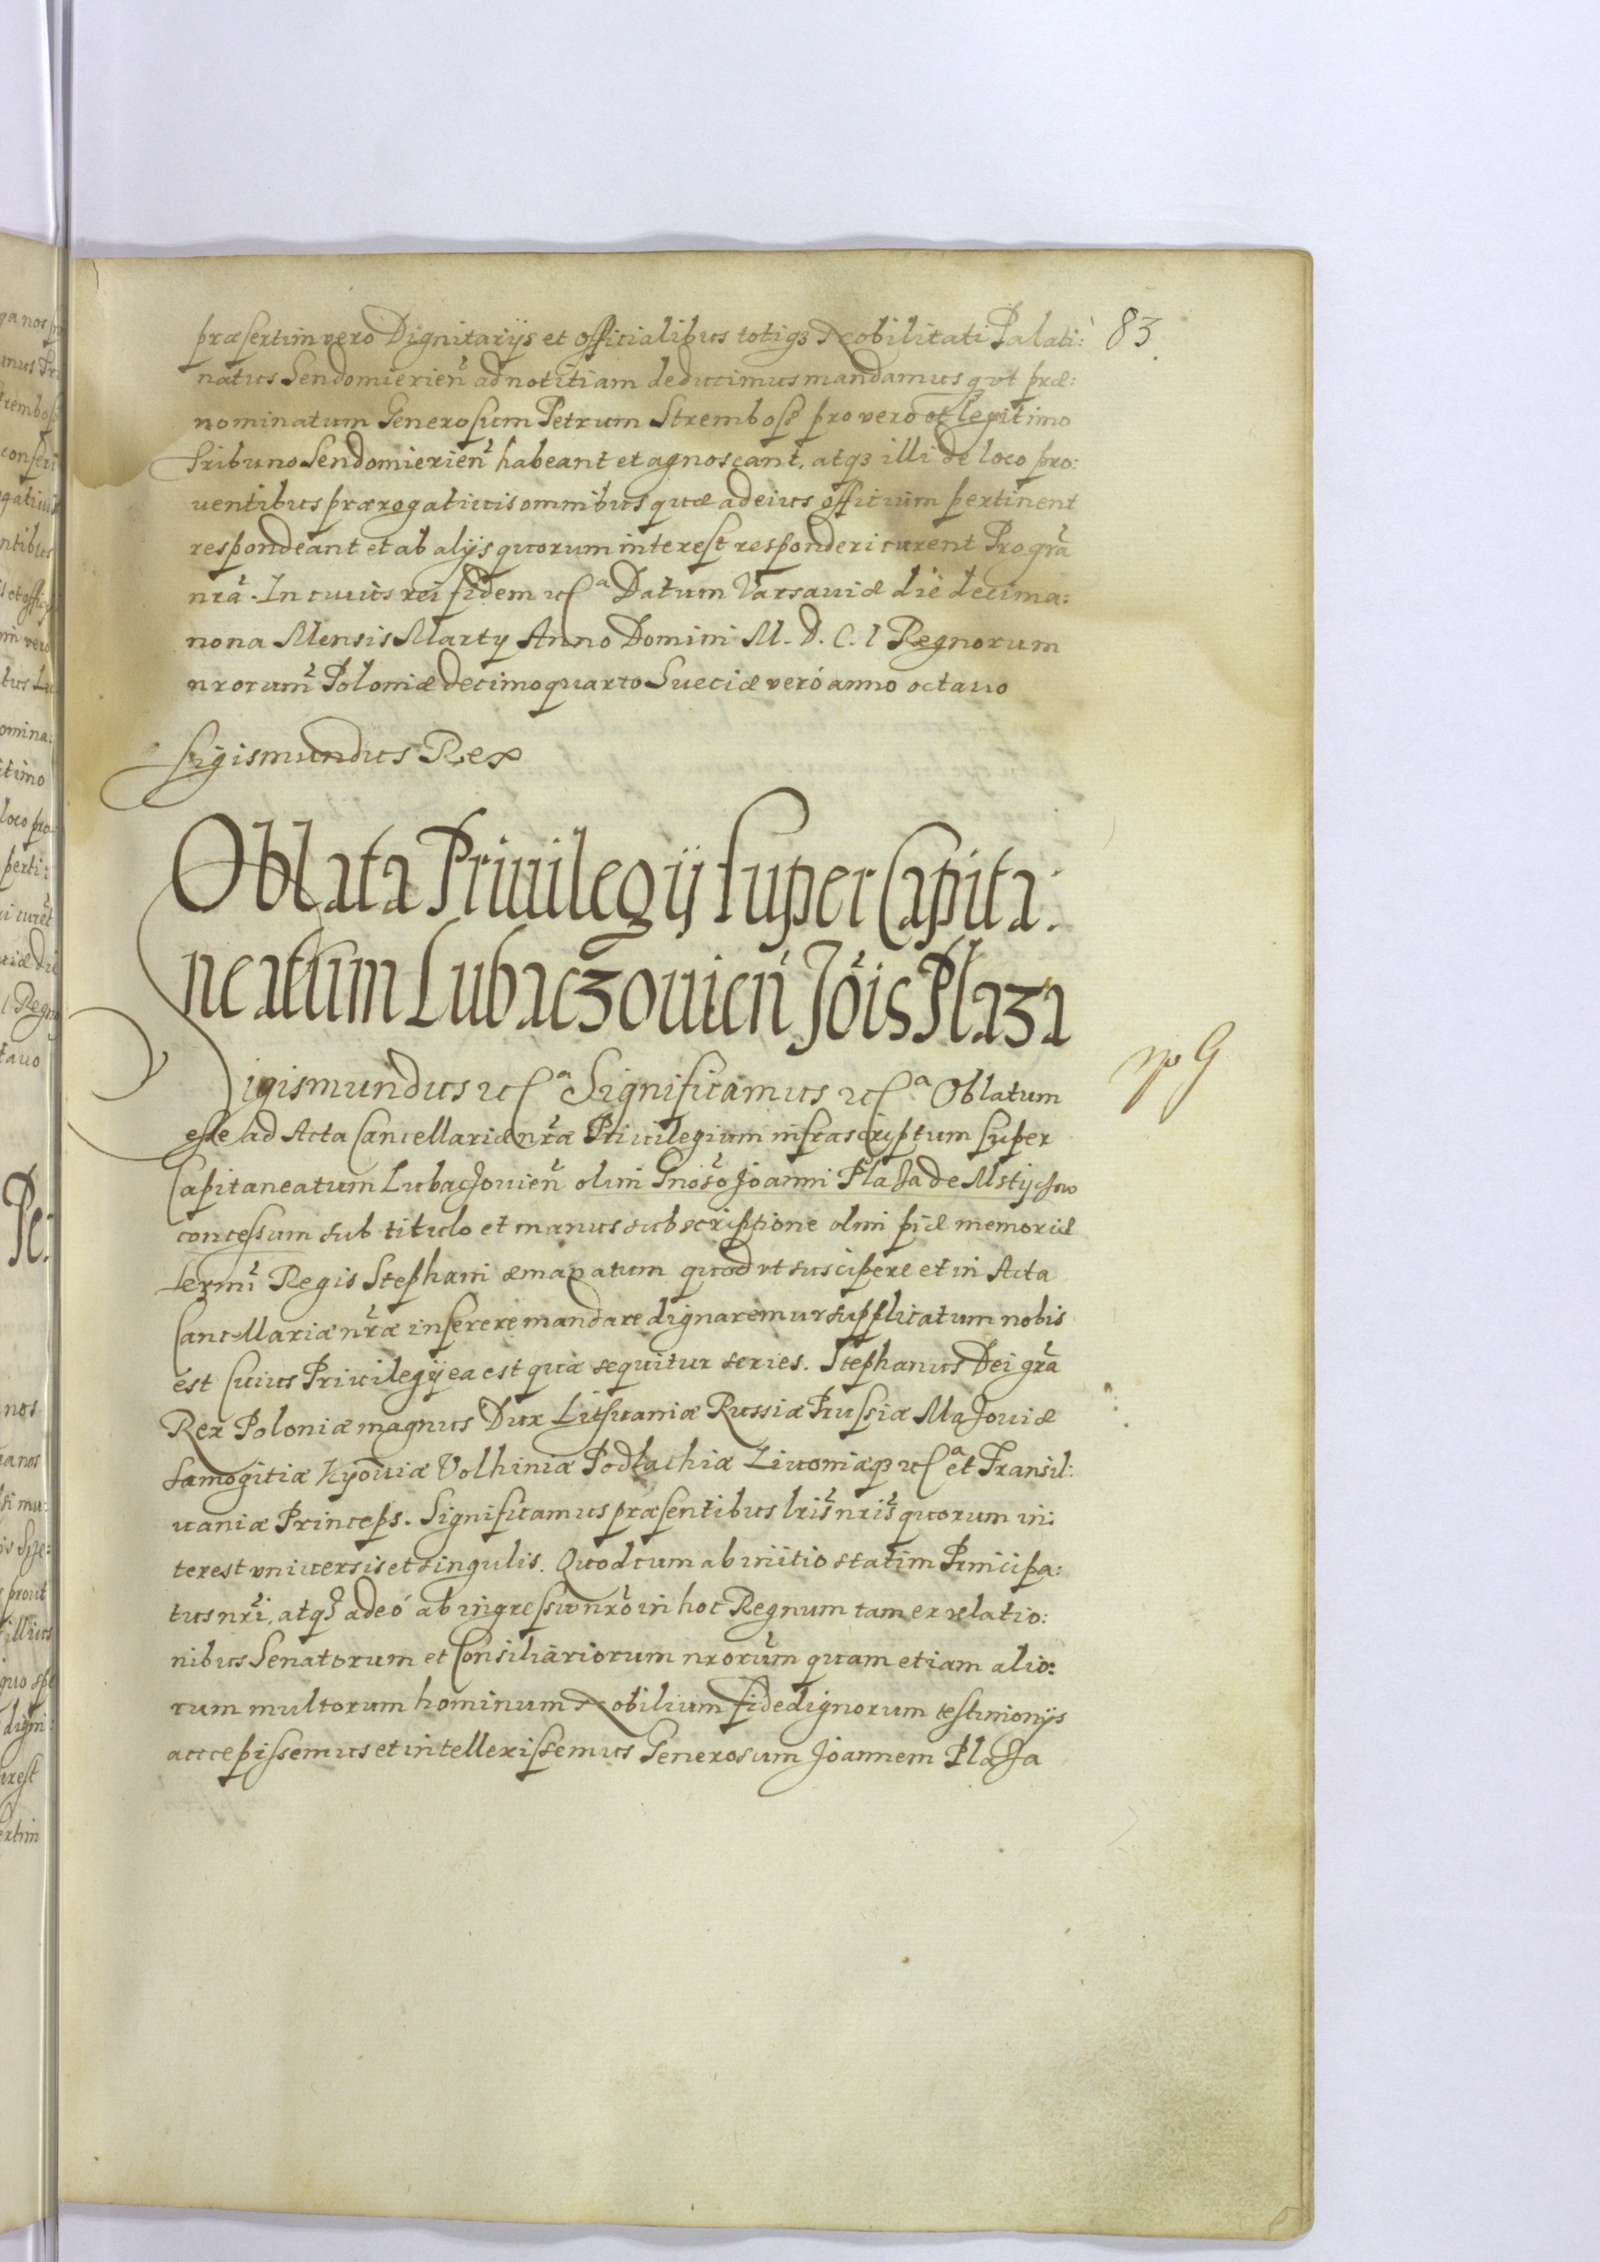 præsertim vero Dignitarijs et officialibus totiq3 Nobilitati Palati:
83
natus Sendomierien̄ ad notitiam deducimus mandamus q̨ ut præ:
nominatum Generosum Petrum Strembosz pro vero et legitimo
Tribuno Sendomierien̄ habeant et agnoscant, atq3 illi de loco pro:
uentibus prærogatiuis omnibus quæ ad eius officium pertinent
respondeant et ab alijs quorum interest responderi curent Pro grā
nrā. In cuius rei fidem etcª Datum Varsauiæ die decima:
nona Mensis Martij Anno Domini M. D. C. I Regnorum
nrorum̄ Poloniæ decimoquarto Sueciæ veró anno octauo
Sigismundus Rex
Oblata Priuilegij super Capita:
neatum Lubaczouien̄ Jōis Plaza
Sigismundus etcª Significamus etcª Oblatum
esse ad Acta Cancellariæ nr̄æ Priuilegium infrascriptum super
Capitaneatum Lubaczouien̄ olim Gnōsō Joanni Plaza de Mstyczow
concessum sub titulo et manus subscriptione olim piæ memoriæ
Sermī Regis Stephani æmanatum quod ut suscipere et in Acta
Cancellariæ nr̄æ inserere mandare dignaremur supplicatum nobis
est Cuius Priuilegij ea est quæ sequitur series. Stephanus Dei grā
Rex Poloniæ magnus Dux Lithuaniæ Russiæ Prussiæ Mazouiæ
Samogitiæ Kyouiæ Volhiniæ Podlachiæ Liuoniæq3 etcª et Transil:
uaniæ Princeps. Significamus præsentibus lrīs nrīs quorum in:
terest vniuersis et singulis. Quod cum ab initio statim Principa:
tus nrī, atq3 adeó ab ingressu nrō in hoc Regnum tam ex relatio:
nibus Senatorum et Consiliariorum nrorūm quam etiam alio:
rum multorum hominum Nobilium fidedignorum testimonijs
accepissemus et intellexissemus Generosum Joannem Plaza